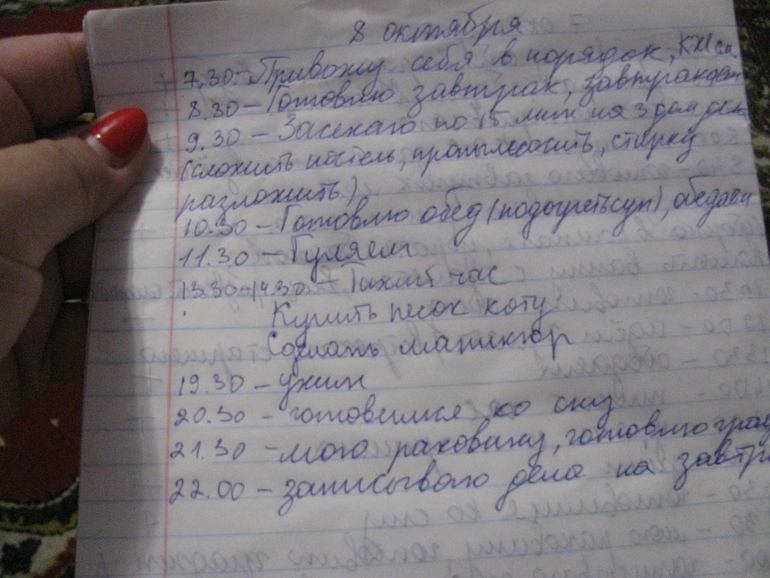 8 октября
7.30 - Привожу себя в порядок,
8.30 - Готовлю завтрак, завтракаем
9.30 - Засекаю по 15 мин на 3 дом дела
(сложить постель, пропылесосить, стирку
разложить)
10.30 - Готовлю обед (подогреть суп), обедаем
11.30 - Гуляем
13.30-14.30 - Тихий час
Купить песок коту
Сделать маникюр
19.30 - ужин
20.30 - готовимся ко сну
21.30 - мою раковину, готовлю
22.00 - записываю дела на завтра